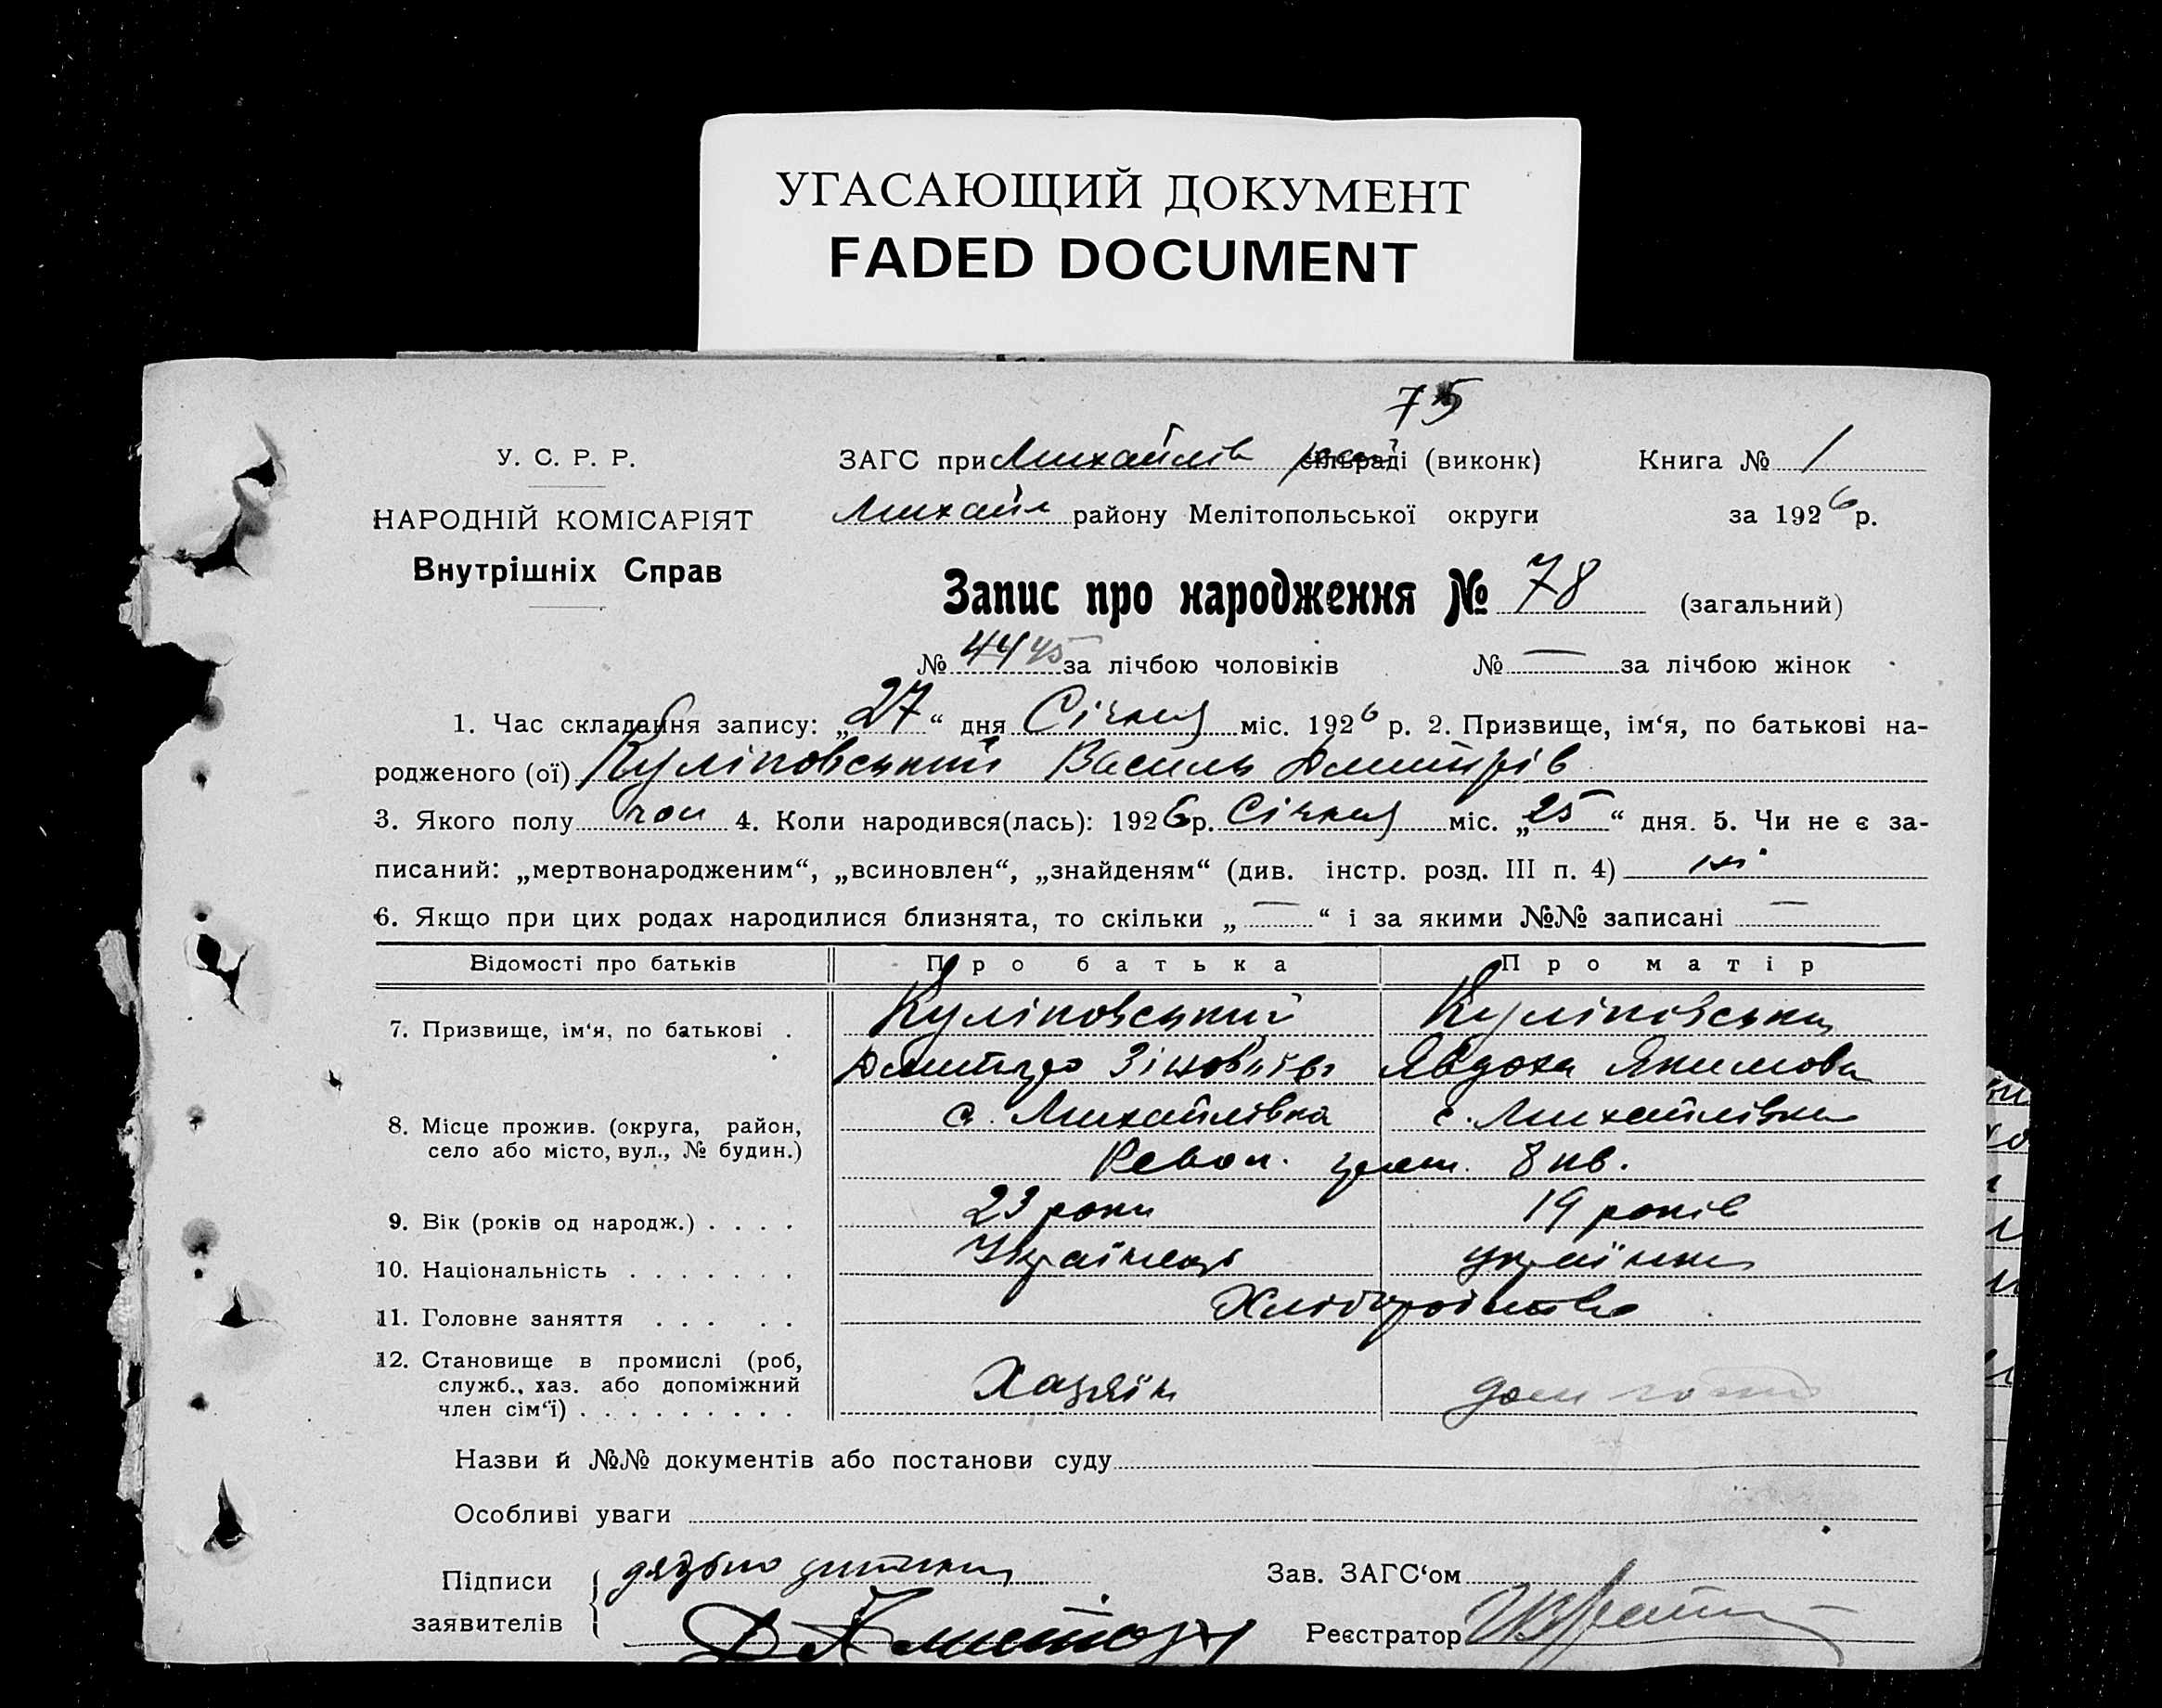 УГАСАЮЩИЙ ДОКУМЕНТ
FADED DOCUMENT
75
У. С. Р. Р.
НАРОДНІЙ КОМІСАРІЯТ
Внутрішніх Справ
ЗАГС при Михайлів сільраді (виконк)
Книга № 1
Михайл району Мелітопольської округи
за 1926 р.
Запис про народження № 78 (загальний)
№ 44 45 за лічбою чоловіків № — за лічбою жінок
1. Час складання запису: „27“ дня Січня міс. 1926 р. 2. Призвище, ім‘я, по батькові на-
родженого (ої) Куліковський Василь Дмитрів
3. Якого полу чол 4. Коли народився(лась): 1926 р. Січня міс. „25“ дня. 5. Чи не є за-
писаний: „мертвонародженим“, „всиновлен“, „знайденям“ (див. інстр. розд. III п. 4) ні
6. Якщо при цих родах народилися близнята, то скільки „—“ і за якими №№ записані —
Відомості про батьків Про батька Про матір
7. Призвище, ім‘я, по батькові . Куліковський Куліковська
Дмитро Зіновіїв Явдоха Якимова
8. Місце прожив. (округа, район,
село або місто, вул., № будин.)
с. Михайлівка с. Михайлівка
Револ. 8 кв.
9. Вік (років од народж.) . . . . 23 роки 19 років
10. Національність . . . . . . . Українець українка
11. Головне заняття . . . . . Хліборобство
12. Становище в промислі (роб,
служб., хаз. або допоміжний
член сім‘ї) . . . . . . . . .
Хазяїн дом
Назви й №№ документів або постанови суду
Особливі уваги
Підписи
заявителів
дядько дитини
Зав. ЗАГС‘ом
Реєстратор